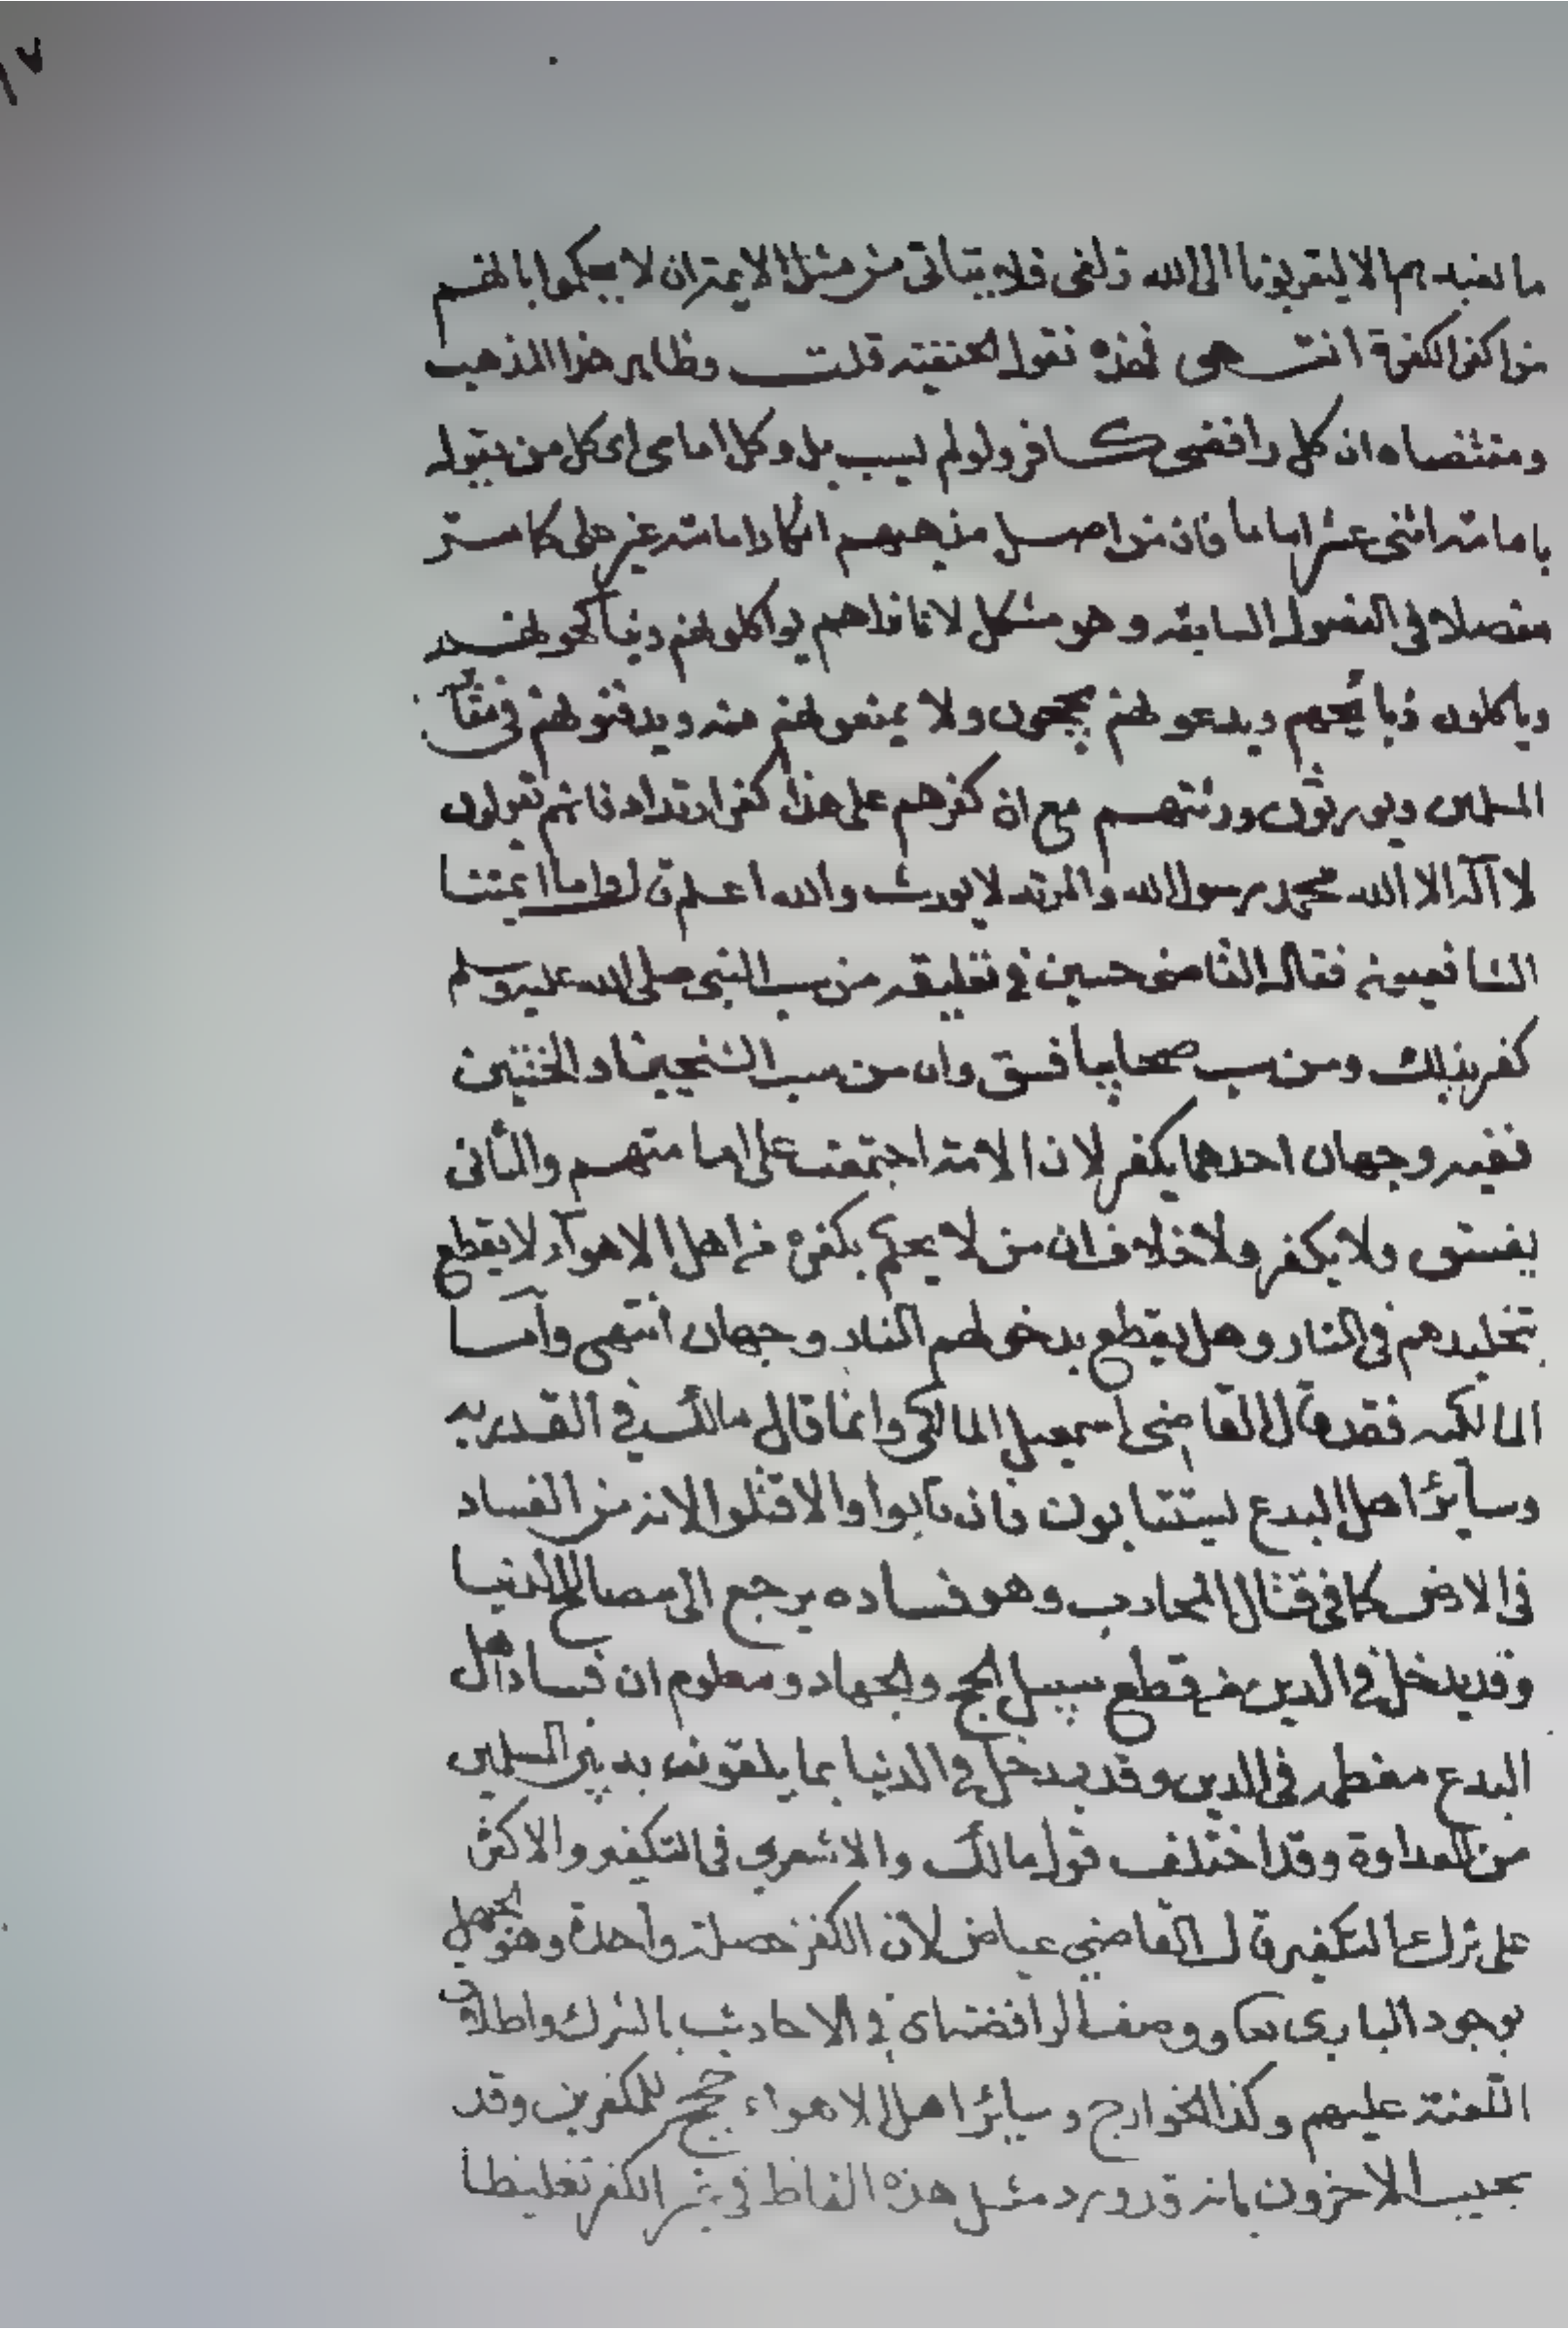 ١٧
ما نعبدهم الا ليقربونا الى الله زلفى فلا يتاتى من مثل الايمة ان لا يحكموا بانهم
من اكفر الكفرة انتهى فهذه نقول الحنفية قلت وظاهر هذا المذهب
ومقتضاه ان كل رافضى كافر ولو لم يسب بل وكل امامى اى كل من يقول
بامامة اثنى عشر اماما فان من اصل مذهبهم انكار امامة غير على كما مر
مفصلا فى الفصول السابقه وهو مشكل لانا نراهم يواكلونهم دنيا
وياكلون ذبايحهم ويدعونهم يحجون ولا يمنعونهم منه ويدفنونهم فى مقابر
المسلمين ويورثون ورثتهم مع ان كفرهم على هذا كفر ارتداد فانهم يقولون
لا آله الا الله محمد رسول الله والمرتد لا يورث والله اعلم واما ايمتنا
الشافعيونه فقال القاضى حسين فى تعليقه من سب النبى صلى الله عليه وسلم
كفر بذلك ومن سب صحابيا فسق وان من سب الشيخين او الختنين
ففيه وجهان احدهما يكفر لان الامة اجتمعت على امامتهم والثانى
يفسق ولا يكفر ولا خلاف ان من لا يحكم بكفره من اهل الاهوآء لا يقطع
بتخليدهم فى النار وهل يقطع بدخولهم النار وجهان انتهى وآما
المالكيه فقد قال القاضى اسمعيل المالكى وانما قال مالك فى القدريه
وسآير اهل البدع يستتابون فان تابوا والا قتلوا لانه من الفساد
فى الارض كما فى قتال المحارب وهو فساده يرجع الى مصالح الدنيا
وقد يدخل فى الدين من قطع سبيل الحج والجهاد ومعلوم ان فساد اهل
البدع معظمه فى الدين وقد يدخل فى الدنيا بما يلقونه به بين المسلمين
من العداوة وقد اختلف قول مالك والاشعري فى التكفير والاكثر
على ترك التكفير قال القاضي عياض لان الكفر خصلة واحدة وهو الجهل
بوجود البارى تعا ووصف الرافضة فى الاحاديث بالشرك واطلاق
اللعنة عليهم وكذا الخوارج وسائر اهل الاهواء حجج للمكفرين وقد
يجيب الاخرون بانه قد ورد مثل هذه الفاظ فى غير الكفر تغليظا